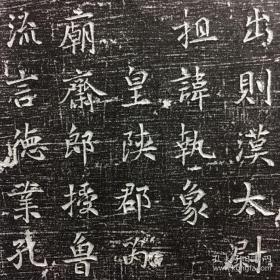 出則漢太尉
祖諱執象
皇陝郡
廟齋郎授魯
流言德業孔